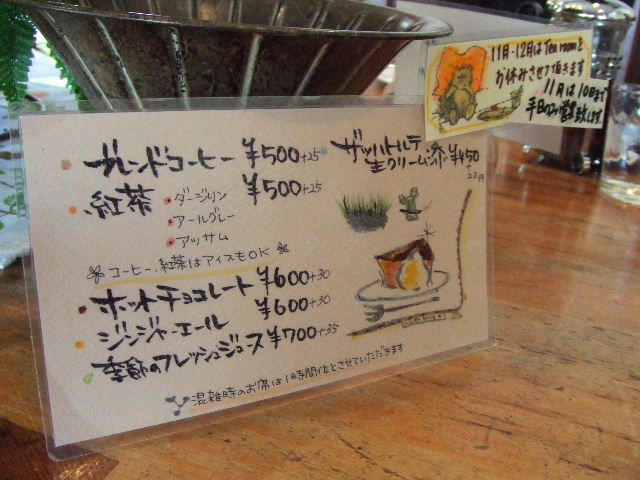 11月・12月はTea roomを
お休みさせて頂きます
11月は10日まで
平日のみ営業致します。
ブレンドコーヒー ¥500+25
紅茶 ¥500+25
ダージリン
アールグレー
アッサム
コーヒー、紅茶はアイスもOK
ホットチョコレート ¥600+30
ジンジャーエール ¥600+30
季節のフレッシュジュース ¥700+35
ザッハトルテ
生クリーム添 ¥450
+22円
混雑時のお席は1時間位とさせていただきます